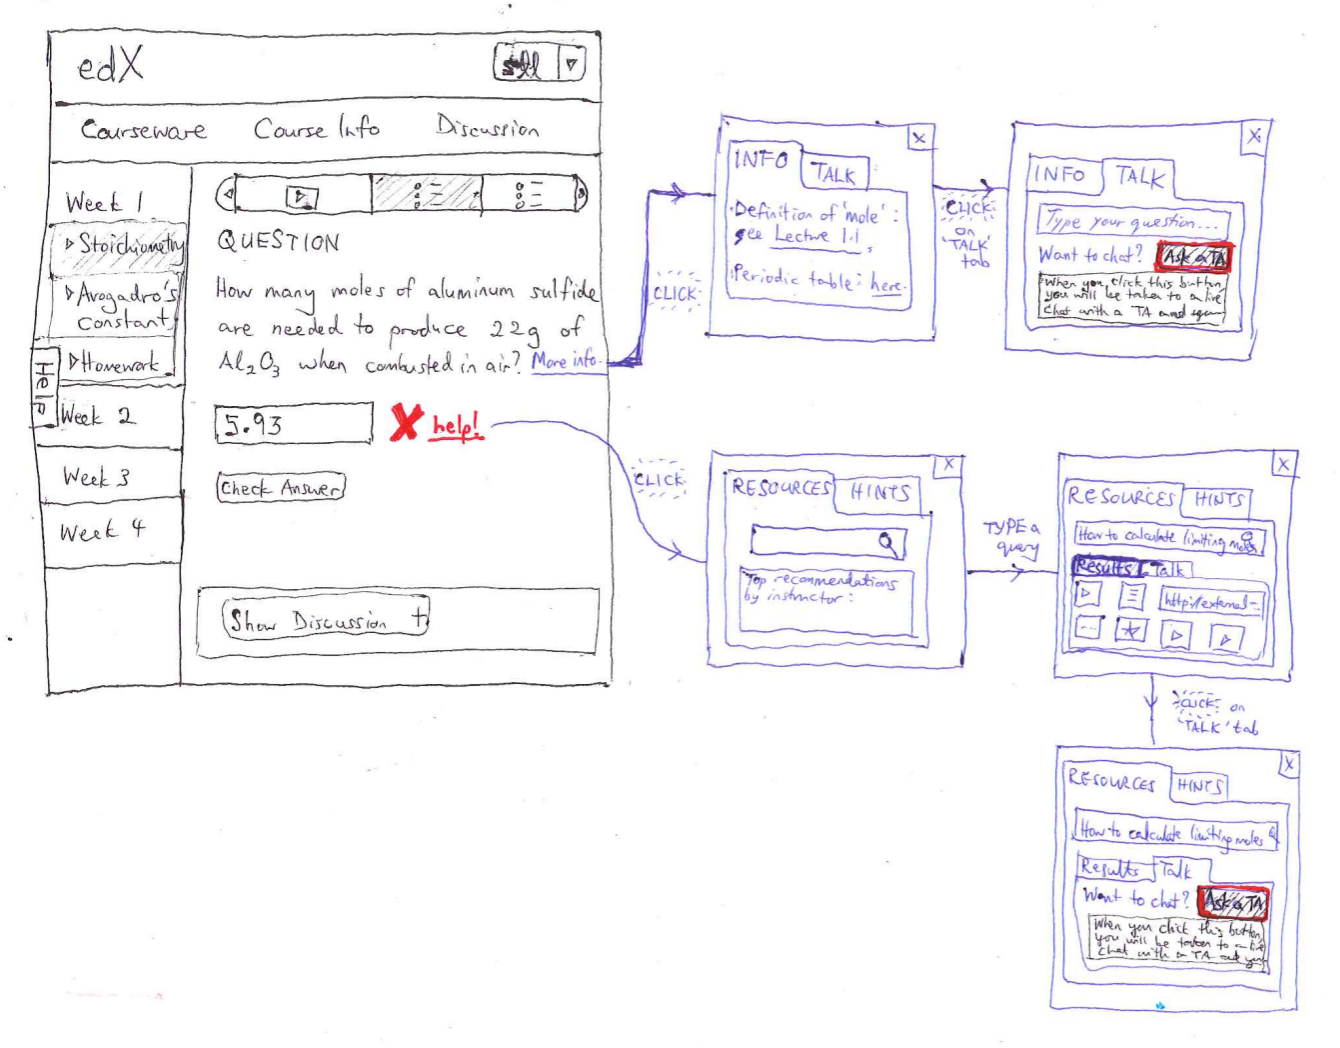 edX
Courseware Course Info Discussion
Week 1
Stoichiometry
Avogadro's
Constant
Homework
Help
Week 2
Week 3
Week 4
QUESTION
How many moles of aluminum sulfide
are needed to produce 22g of
Al2O3 when combusted in air? More info.
5.93 X help!
Check Answer
Show Discussion +
CLICK
X
INFO TALK
Definition of 'mole':
see Lecture 1.1,
Periodic table: here.
CLICK
on
'TALK'
tab
X
INFO TALK
Type your question...
Want to chat? Ask a TA
When you click this button,
you will be taken to a live
chat with a TA and
CLICK
X
RESOURCES HINTS
Top recommendations
by instructor:
TYPE a
query
X
RESOURCES HINTS
How to calculate limiting moles
Results Talk
http://external-..
CLICK on
'TALK' tab
X
RESOURCES HINTS
How to calculate limiting moles
Results Talk
Want to chat? Ask a TA
When you click this button,
you will be taken to a live
chat with a TA and